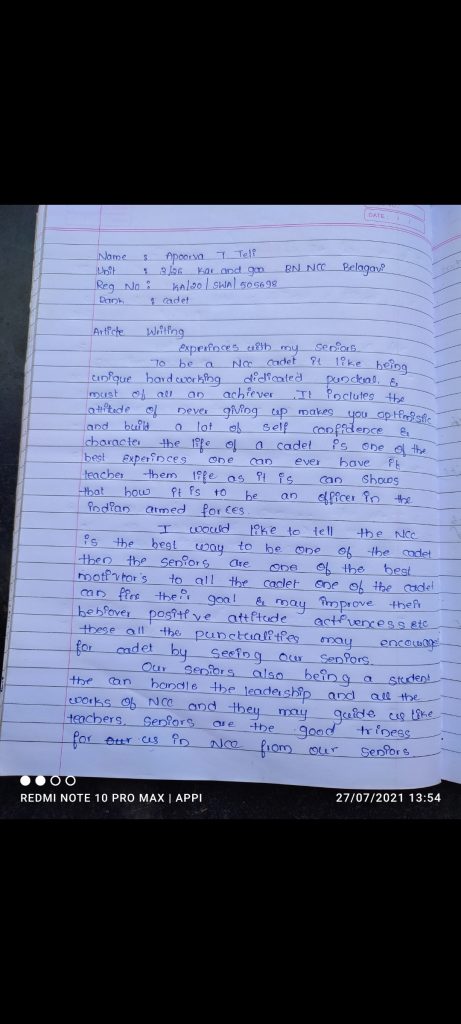 DATE:
Name : Apoorva T Teli
Unit : 3/26 Kar and goa BN NCC Belagavi
Reg No : KA/20/SWA/505698
Rank : cadet
Article Writing
Experinces with my seniors
To be a NCC cadet it like being
unique hardworking didicated punctual &
must of all an achiever. It inclutes the
attitude of never giving up makes you optimistic
and built a lot of self confidence &
character the life of a cadet is one of the
best experinces one can ever have it
teacher them life as it is can shows
that how it is to be an officer in the
indian armed forces.
I would like to tell the NCC
is the best way to be one of the cadet
then the seniors are one of the best
motivtor's to all the cadet one of the cadet
can fine their goal & may improve their
behiover positive attitude activencess etc
these all the punctualities may encourage
for cadet by seeing our seniors.
Our seniors also being a student
the can handle the leadership and all the
works of NCC and they may guide us like
teachers. Seniors are the good triness
for our us in NCC from our seniors
REDMI NOTE 10 PRO MAX | APPI
27/07/2021 13:54